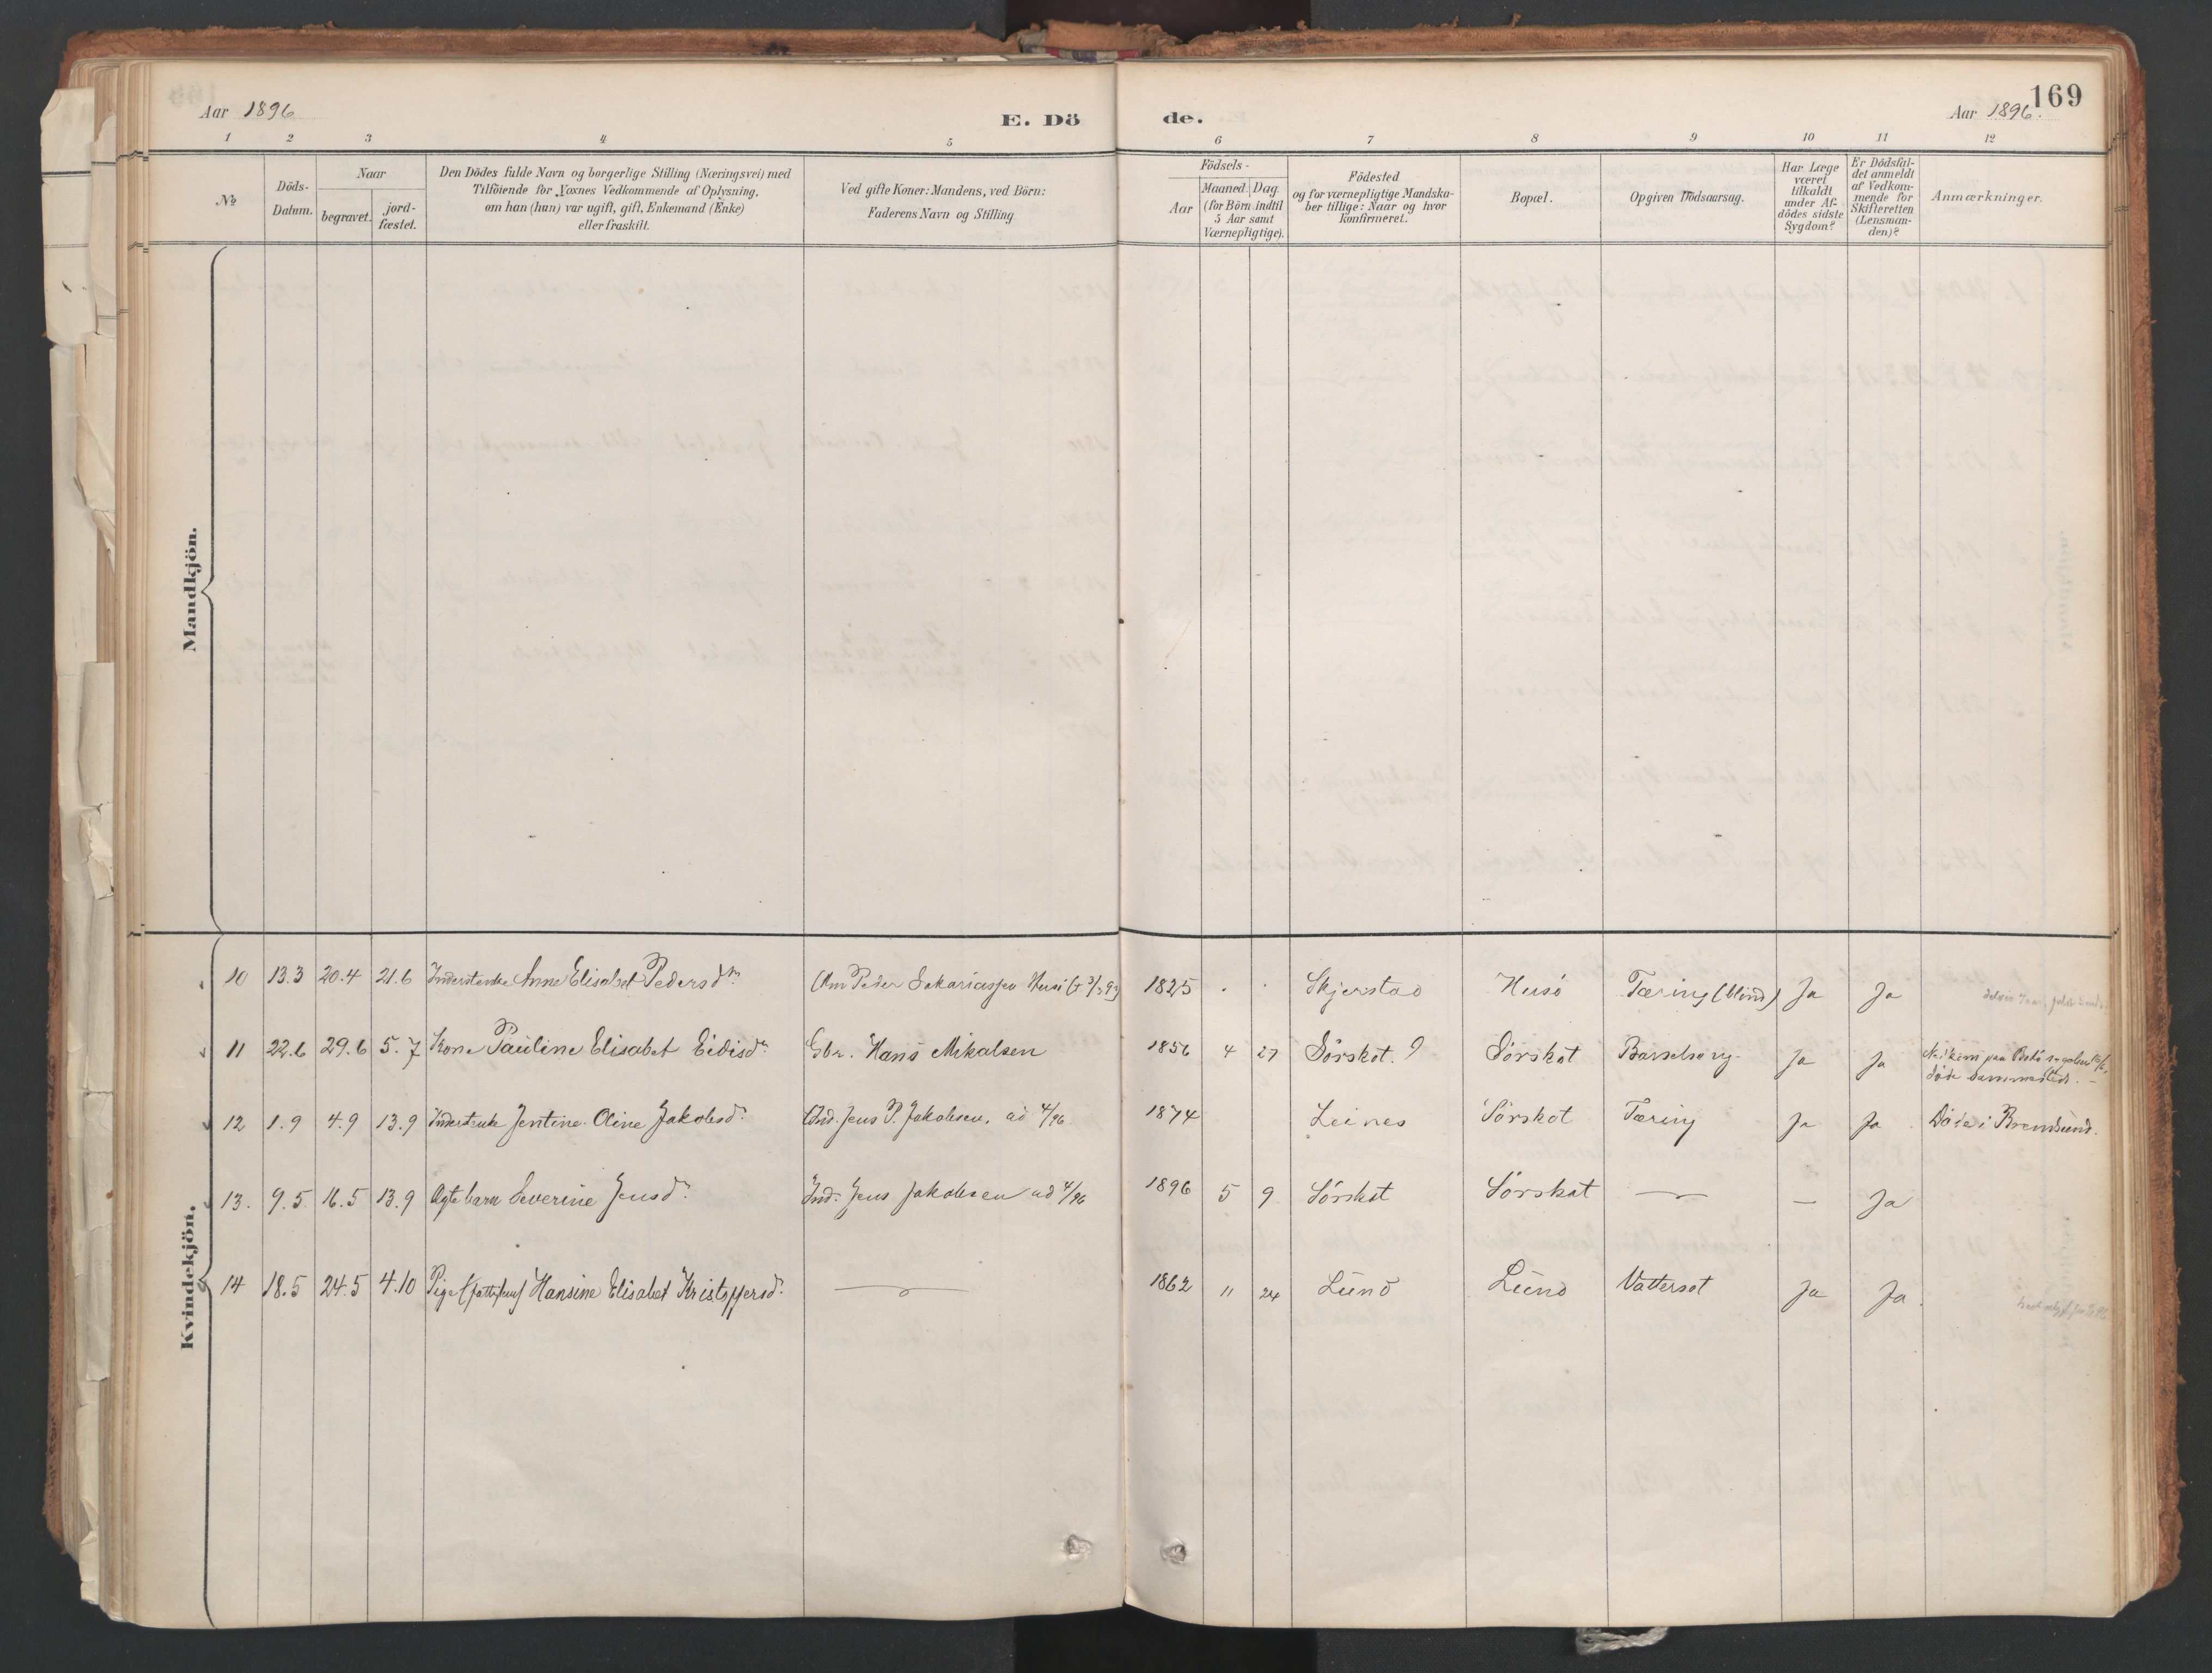 169
Aar 1896
E. Dö
de.
Aar 1896.
1 2 3 4 5 6 7 8 9 10 11 12
№
Döds-
Datum.
Naar
begravet.
jord-
fæstet.
Den Dödes fulde Navn og borgerlige Stilling (Næringsvei) med
Tilföiende for Voxnes Vedkommende af Oplysning,
om han (hun) var ugift, gift, Enkemand (Enke)
eller fraskilt.
Ved gifte Koner: Mandens, ved Börn:
Faderens Navn og Stilling.
Födsels-
Aar
Maaned. Dag.
(for Börn indtil
5 Aar samt
Værnepligtige).
Födested
og for værnepligtige Mandska-
ber tillige: Naar og hvor
konfirmeret.
Bopæl.
Opgiven Dödsaarsag.
Har Læge
været
tilkaldt
under Af-
dödes sidste
Sygdom?
Er Dödsfal-
det anmeldt
af Vedkom-
mende for
Skifteretten
(Lensman-
den)?
Anmærkninger.
Mandkjön.
Kvindekjön.
10 13.3 20.4 21.6 Inderstenke Anne Elisabet Pedersdtr. Peder Sakariassen Husö 1825 Skjerstad Husö Tæring (blind) Ja Ja
11 22.6 29.6 5.7 Kone Pauline Elisabet Eidisdr. Gbr. Hans Mikalsen 1856 4 27 Sörskot. ? Sörskot Barselseng. Ja Ja
döde sammesteds. -
12 1.9 4.9 13.9 Jentine Oline Jakobsd. Ind. Jens P. Jakobsen, ad 4/96 1874 Leines Sörskot Tæring Ja Ja Döde i Bremsund.
13. 9.5 16.5 13.9 Ægte barn Severine Jensdr. Ind. Jens Jakobsen ad 4/96 1896 5 9 Sörskot Sörskot — — Ja
14 18.5 24.5 4.10 Pige Hansine Elisabet Kristoffersdr. — 1862 11 24 Lund Lund Vattersot Ja Ja.